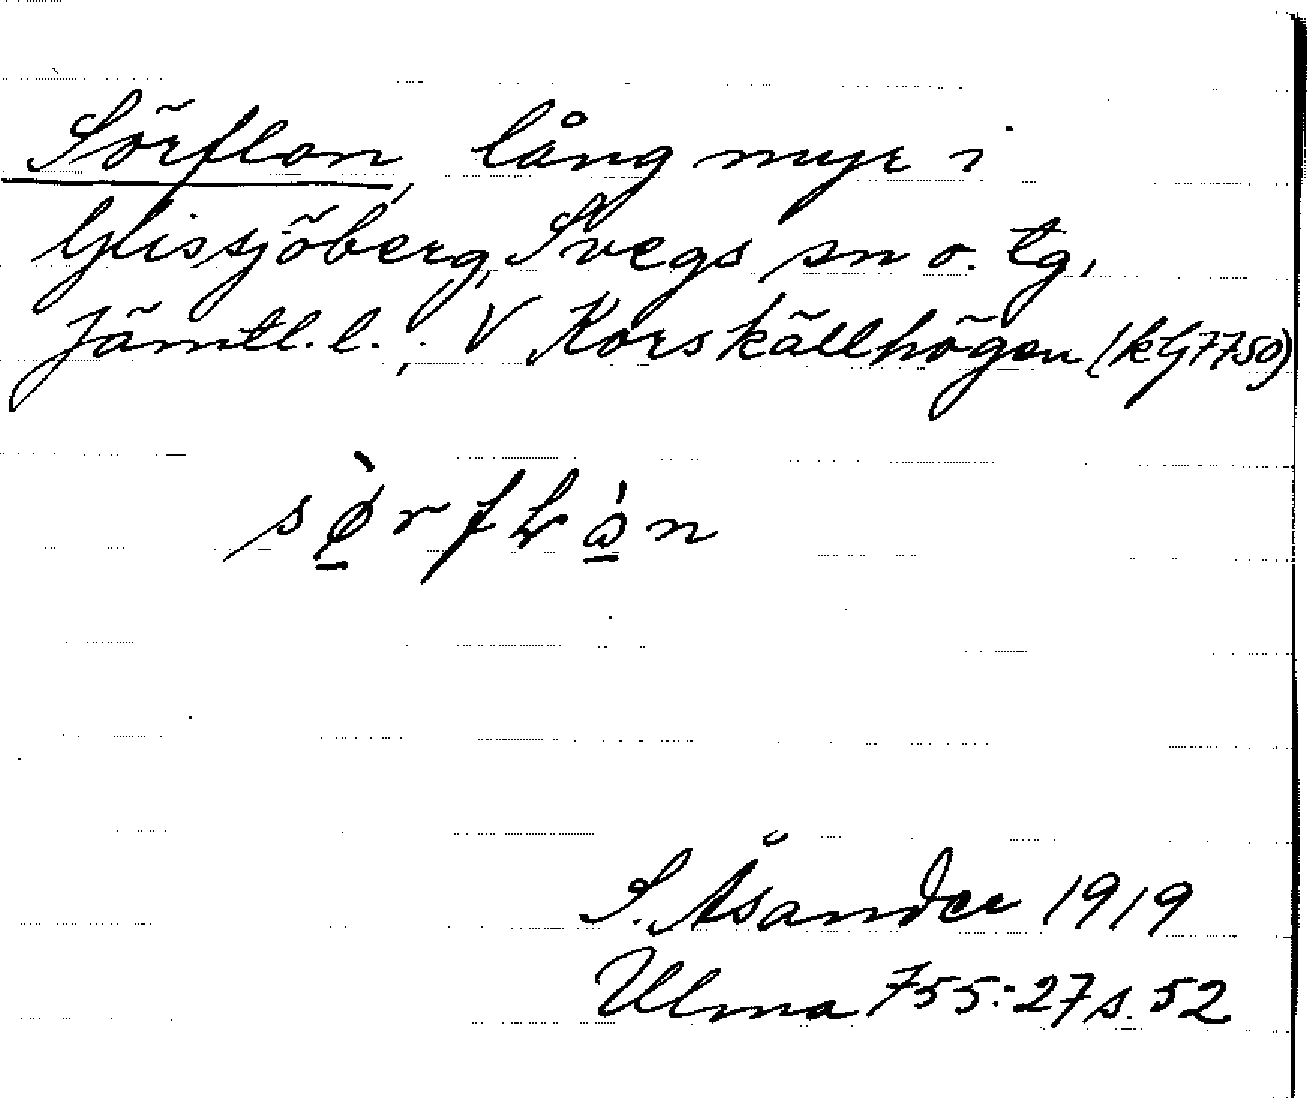 Sörflon, lång myr i
Glissjöberg, Svegs sn o. tg,
Jämtl. l., V Korskällhögen (kG7750)
S. Åsander 1919
Ulma 755:27 s. 52